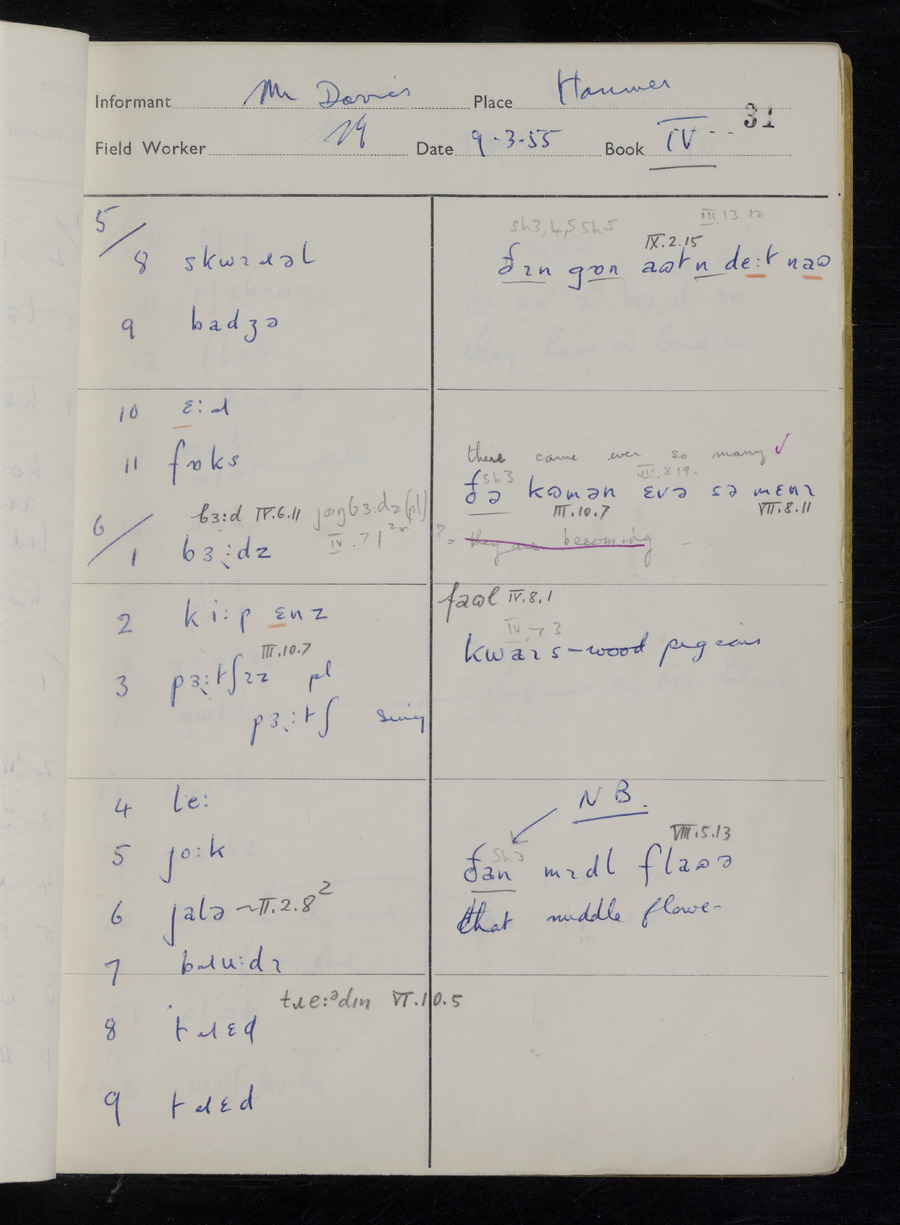 Informant Mr Davies Place Hanmer
31
Field Worker Date 9-3-55 Book IV
5/
8 skwɪɹəl
9 badʒə
sh3,4,5 sh5
III.13.12
IX.2.15
ðɪn gɒn aʊtn de:t naʊ
10 ɛ:ɹ
11 fɒks
6/
bɜ:d IV.6.11
jɒŋbɜ:dz(pl)
IV.7.1
1 bɜ:dz
there came ever so many ✓
sh3
VII.8.19.
ðə kəmən ɛvə sə mɛnɪ
III.10.7
VII.8.11
? = they are becoming
2 ki:p ɛnz
III.10.7
3 pɜ:tʃɪz pl
pɜ:tʃ sing
faʊl IV.8.1
IV.7.3
kwaɪs-wood pigeons
4 le:
5 jo:k
6 jalə ~ II.2.8²
7 bɹu:dɪ
NB.
VIII.5.13
ðan mɪdl flaʊə
that middle flower
tɹe:ᵊdɪn VI.10.5
8 tɹɛd
9 tɹɛd